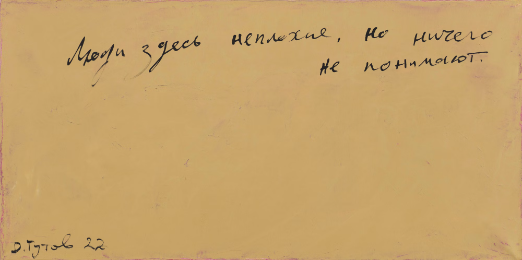 Люди здесь неплохие, но ничего
не понимают.
Д.Гутов 22